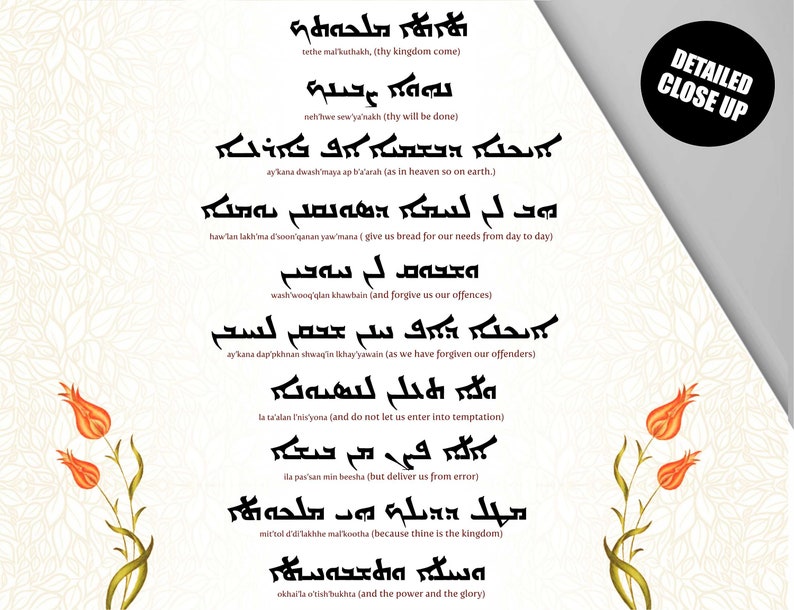 ܬܐܬܐ ܡܠܟܘܬܟ
tethe mal'kuthakh, (thy kingdom come)
ܢܗܘܐ ܨܒܝܢܟ
neh'hwe sew'ya'nakh (thy will be done)
ܐܝܟܢܐ ܕܒܫܡܝܐ ܐܦ ܒܐܪܥܐ
ay'kana dwash'maya ap b'a'arah (as in heaven so on earth.)
ܗܒ ܠܢ ܠܚܡܐ ܕܣܘܢܩܢܢ ܝܘܡܢܐ
haw'lan lakh'ma d'soon'qanan yaw'mana ( give us bread for our needs from day to day)
ܘܫܒܘܩ ܠܢ ܚܘܒܝܢ
wash'wooq'qlan khawbain (and forgive us our offences)
ܐܝܟܢܐ ܕܐܦ ܚܢܢ ܫܒܩܢ ܠܚܝܒܝܢ
ay'kana dap'pkhnan shwaq'in lkhay'yawain (as we have forgiven our offenders)
ܘܠܐ ܬܥܠܢ ܠܢܣܝܘܢܐ
la ta'alan l'nis'yona (and do not let us enter into temptation)
ܐܠܐ ܦܨܢ ܡܢ ܒܝܫܐ
ila pas'san min beesha (but deliver us from error)
ܡܛܠ ܕܕܝܠܟ ܗܝ ܡܠܟܘܬܐ
mit'tol d'di'lakhhe mal'kootha (because thine is the kingdom)
ܘܚܝܠܐ ܘܬܫܒܘܚܬܐ
okhai'la o'tish'bukhta (and the power and the glory)
DETAILED
CLOSE UP